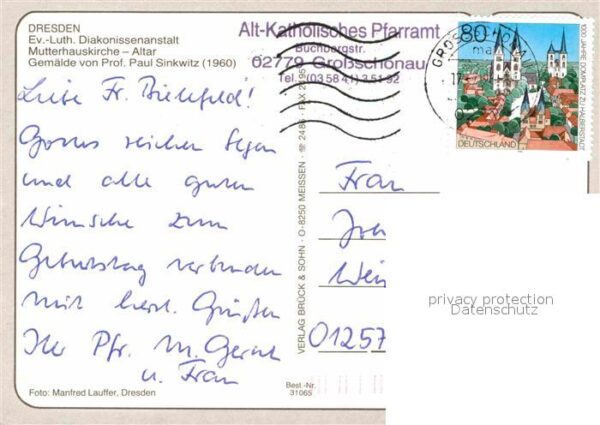 DRESDEN
Ev.-Luth. Diakonissenanstalt
Mutterhauskirche – Altar
Gemälde von Prof. Paul Sinkwitz (1960)
Liebe Fr. Bielefeld!
Gottes reichen Segen
und alle guten
Wünsche zum
Geburtstag verbunden
mit herzl. Grüßen
Ihr Pfr. M.
u. Frau
Foto: Manfred Lauffer, Dresden
Best.-Nr.
31065
VERLAG BRÜCK & SOHN · O-8250 MEISSEN · ☏ 2486 · FAX
Alt-Katholisches Pfarramt
Buchbergstr.
02779 Großschönau
Tel. (03 58 41) 3 51 92
80
1000 JAHRE DOMPLATZ ZU HALBERSTADT
DEUTSCHLAND
Frau
01257
privacy protection
Datenschutz